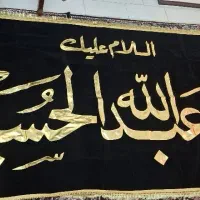 السلام عليك
عبدالله الحسين